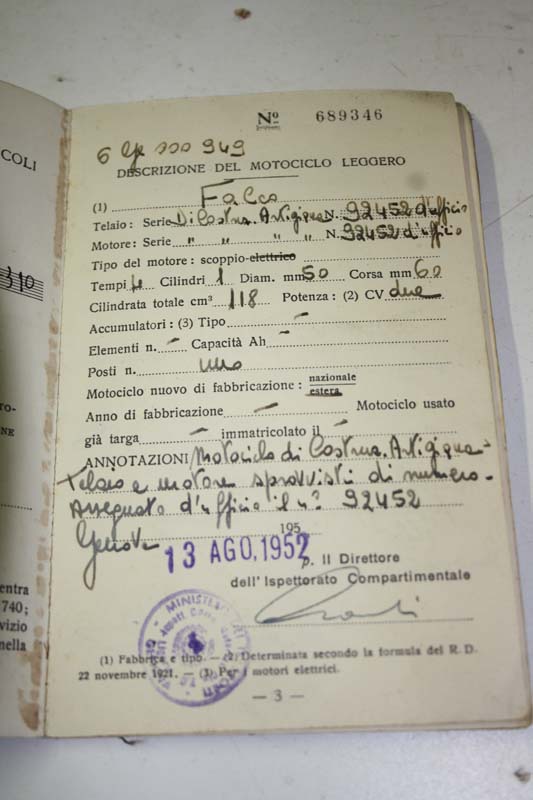 Nº 689346
949
COLI
DESCRIZIONE DEL MOTOCICLO LEGGERO
(1) Falco
Telaio: Serie Di Costruz. Artigiana N. 92452 d'ufficio
Motore: Serie " " " " N. 92452 d'ufficio
310
Tipo del motore: scoppio-elettrico
Tempi 4 Cilindri 1 Diam. mm 50 Corsa mm 60
Cilindrata totale cm³ 118 Potenza: (2) CV due
Accumulatori: (3) Tipo –
Elementi n. – Capacità Ah –
Posti n. uno
Motociclo nuovo di fabbricazione: nazionale
estera
Anno di fabbricazione – Motociclo usato
già targa – immatricolato il –
ANNOTAZIONI Motociclo di Costruz. Artigiana-
Telaio e motore sprovvisti di numero-
Assegnato d'ufficio il n° 92452
Genova 195
13 AGO. 1952
p. Il Direttore
dell'Ispettorato Compartimentale
entra
740;
vizio
nella
(1) Fabbrica e tipo. — (2) Determinata secondo la formula del R. D.
22 novembre 1921. — (3) Per i motori elettrici.
— 3 —